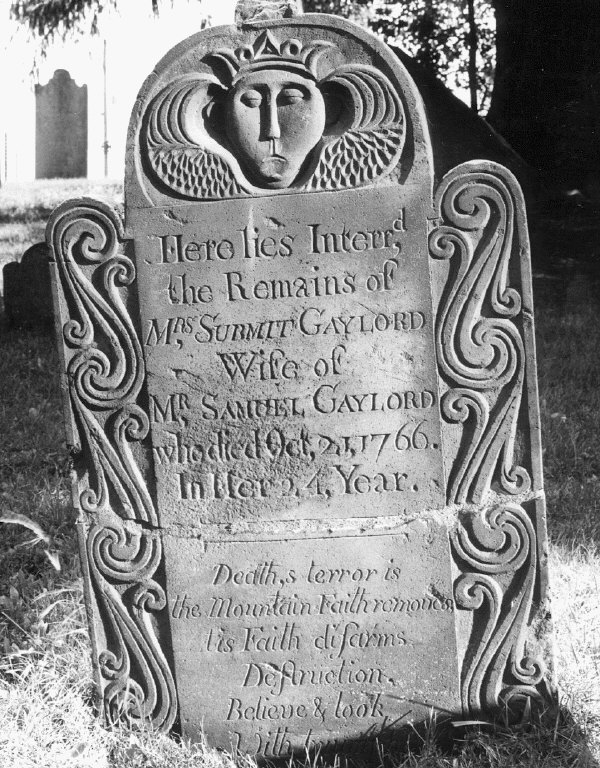 Here lies Interr,d
the Remains of
Mrs, SUBMIT GAYLORD
Wife of
Mr, SAMUEL GAYLORD
who died Oct, 21, 1766.
In Her 24, Year.
Death,s terror is
the Mountain Faith removes
tis Faith disarms
Destruction.
Believe & look
With